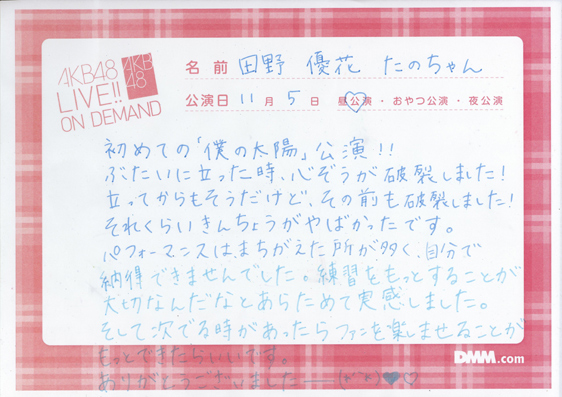 AKB48
LIVE!!
ON DEMAND
AKB
48
名前 田野 優花 たのちゃん
公演日 11月 5日 昼公演・おやつ公演・夜公演
初めての「僕の太陽」公演!!
ぶたいに立った時、心ぞうが破裂しました!
立ってからもそうだけど、その前も破裂しました!
それくらいきんちょうがやばかったです。
パフォーマンスは、まちがえた所が多く、自分で
納得できませんでした。練習をもっとすることが
大切なんだなとあらためて実感しました。
そして次でる時があったらファンを楽しませることが
もっとできたらいいです。
ありがとうございましたー
DMM.com